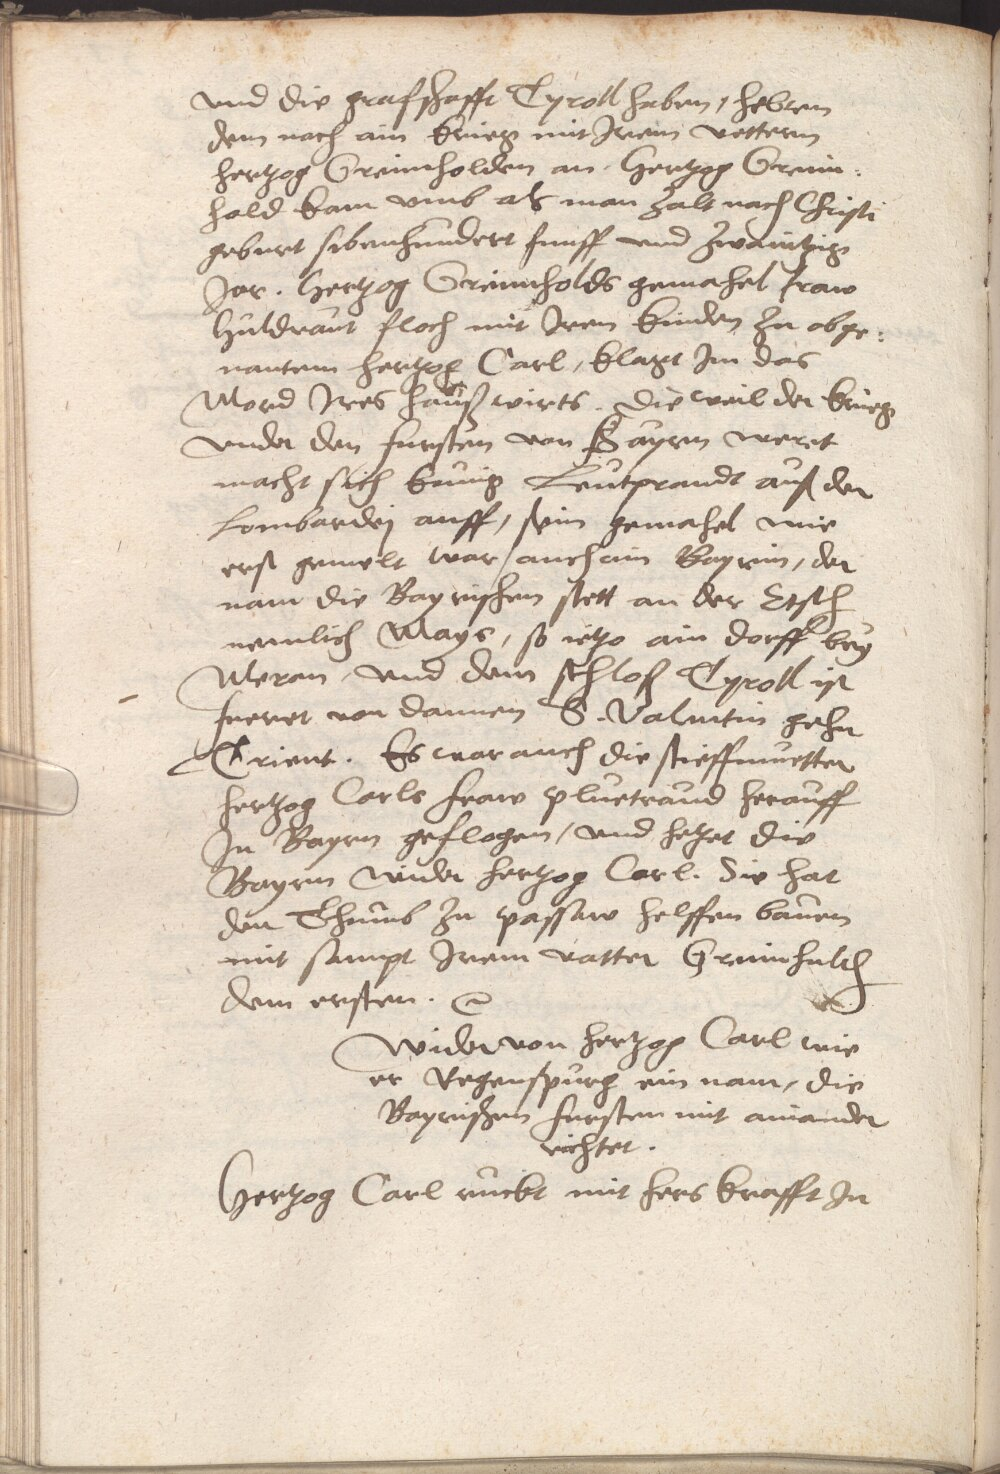 vnd die grafschafft Tyroll haben, hebten
dem nach ain krieg mit Irem vettern
hertzog Greimholden an. Hertzog Greim:
hold kam vmb als man zalt nach Christi
geburt sibenhundert funff vnd zwaintzig
Jar. Hertzog Greimholds gemahel fraw
Huldraut floch mit Iren kinden zu obge:
nantem hertzog Carl, klagt Im das
Mord Ires haußwirts. Die weil der krieg
vnder den fursten von Bayrn weret
macht sich kunig Leutprandt auß der
Lombardej auff, sein gemahel wie
erst gemelt war auch ain Bayrin, der
nam die Bayrischen stett an der Etsch
nemlich Mays, so ietzo ain dorff bey
Meran, vnd dem schloß Tyroll ist
fueret von dannen S. Valentin gehn
Trient. Es war auch die stieffmuetter
hertzog Carls fraw pluetraud herauff
In Bayrn geflogen, vnd hetzet die
Bayrn wider hertzog Carl. Die hat
den Thumb zu passaw helffen bauen
mit sampt Irem vatter Greimhold
dem ersten.
Wider von hertzog Carl wie
er Regenspurg ein nam, die
Bayrischen fursten mit ainander
richtet.
Hertzog Carl ruckt mit hers krafft In